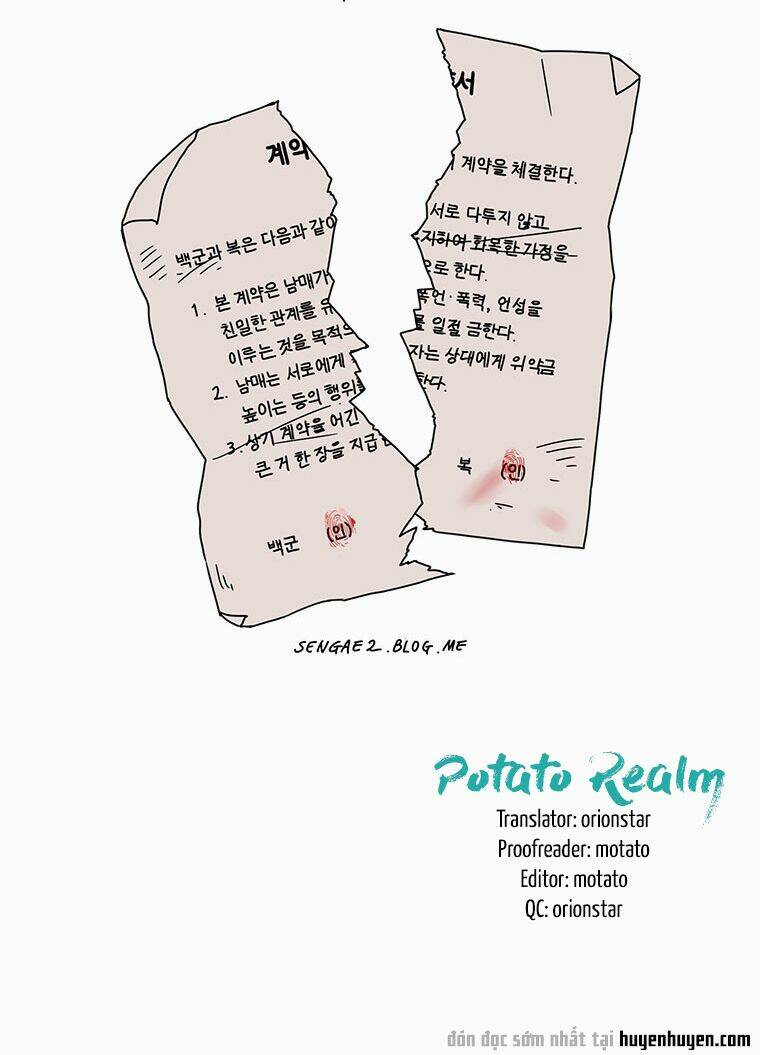 계약
서
백군과 복은 다음과 같이
계약을 체결한다.
1. 본 계약은 남매가
서로 다투지 않고
친일한 관계를 유
지하여 화목한 가정을
이루는 것을 목적으
로 한다.
2. 남매는 서로에게
폭언·폭력, 언성을
높이는 등의 행위를
일절 금한다.
3. 상기 계약을 어긴
자는 상대에게 위약금
큰 거 한 장을 지급
한다.
백군 (인)
복 (인)
SENGAE2.BLOG.ME
Potato Realm
Translator: orionstar
Proofreader: motato
Editor: motato
QC: orionstar
đón đọc sớm nhất tại huyenhuyen.com